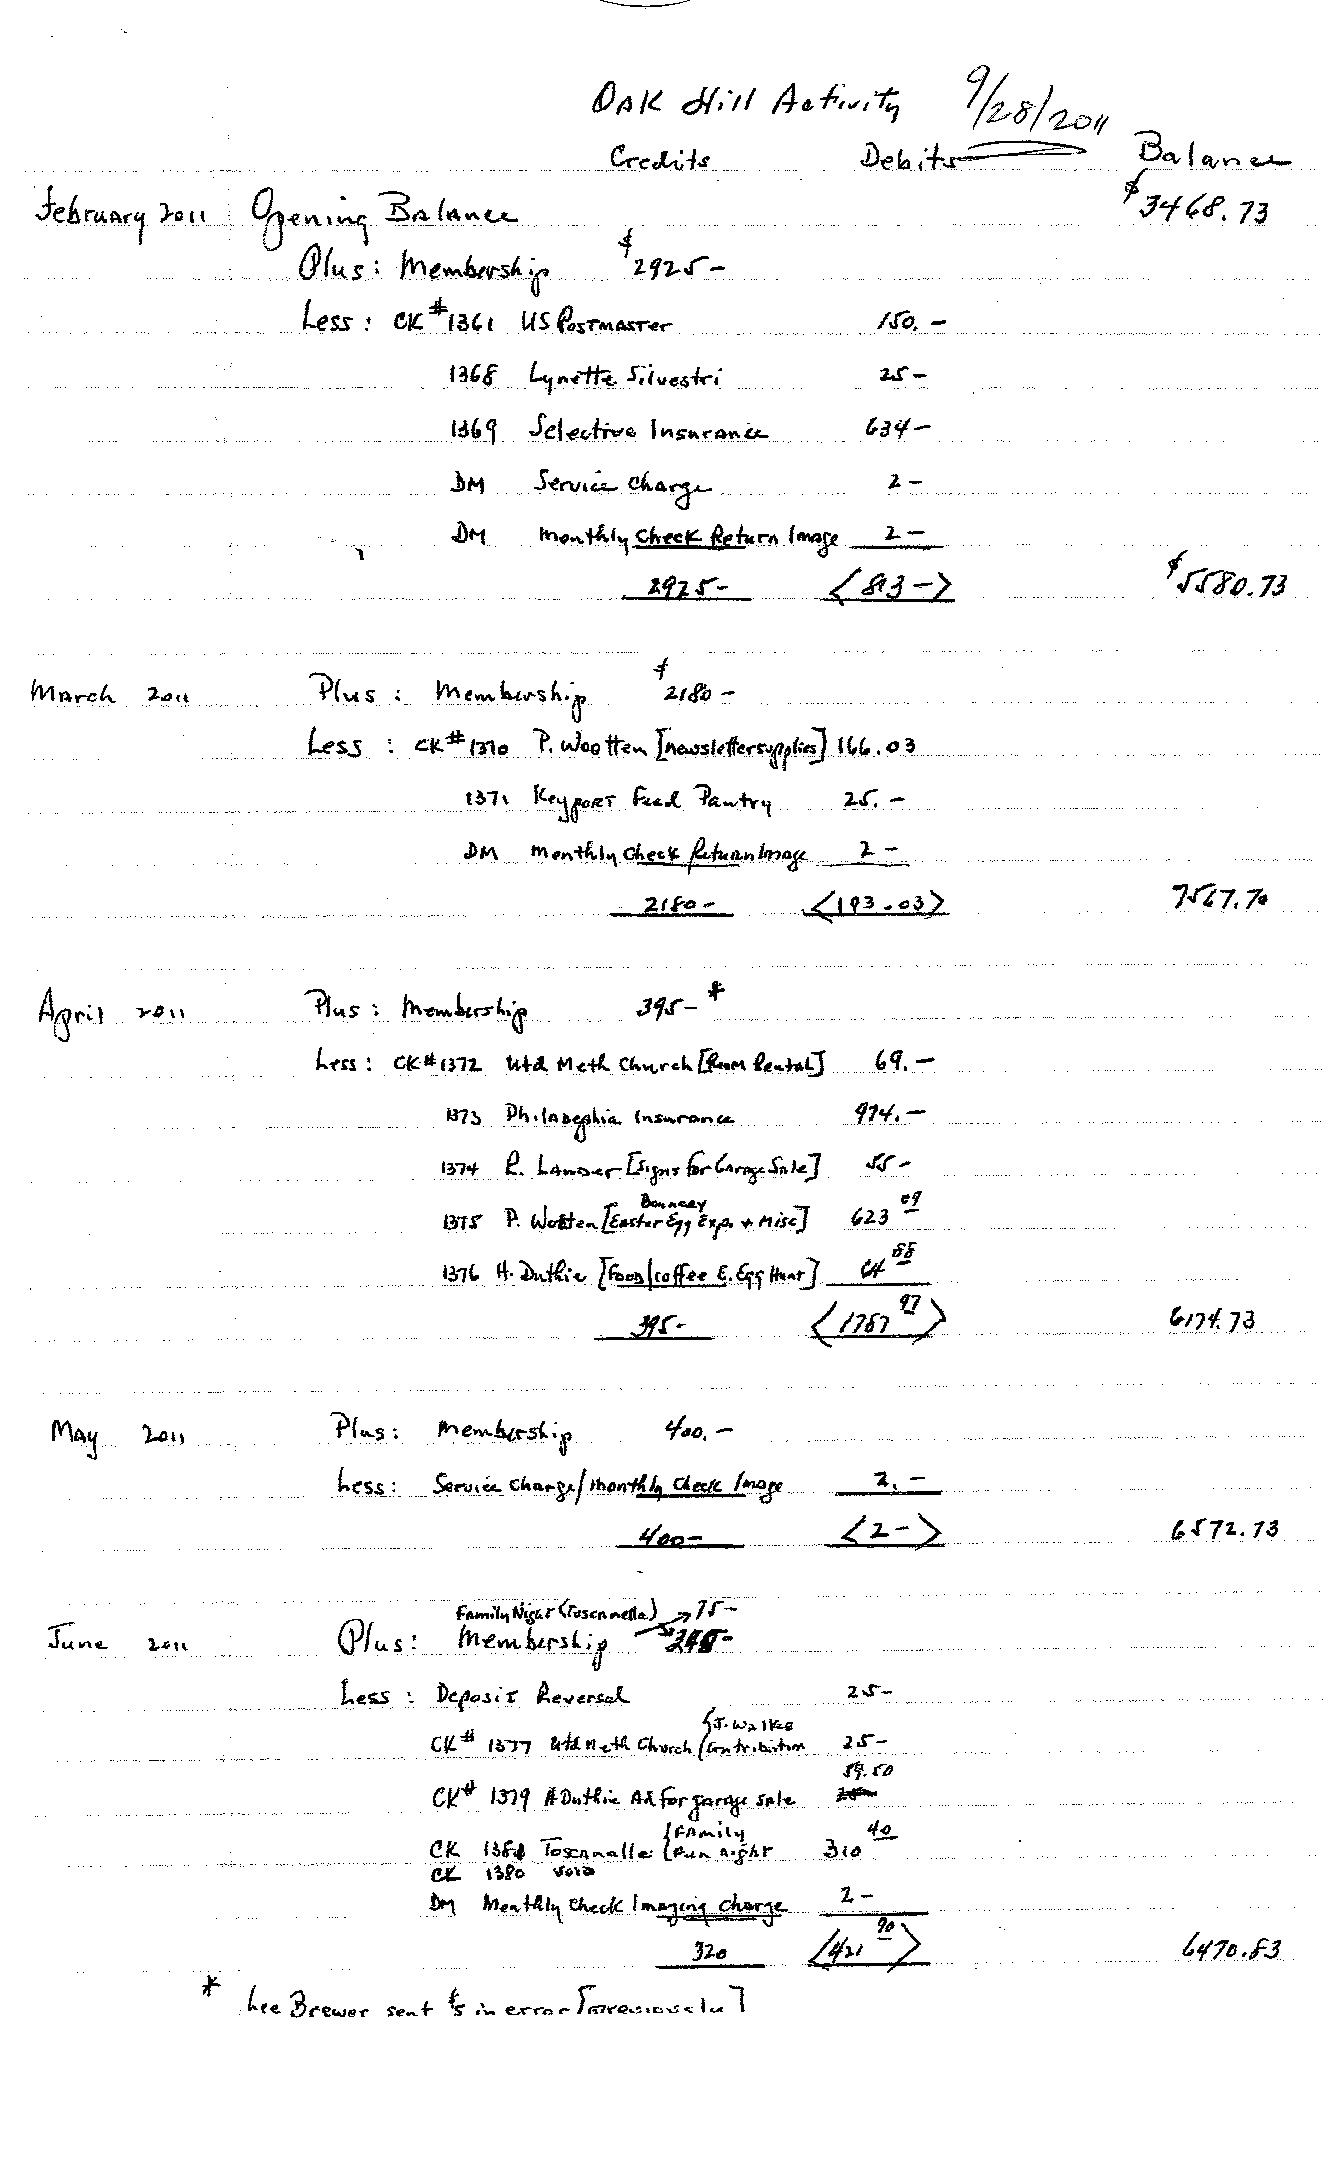 Oak Hill Activity 9/28/2011
Credits Debits Balance
February 2011 Opening Balance $3468.73
Plus: Membership $2925-
Less: CK#1361 US Postmaster 150.-
1368 Lynette Silvestri 25-
1369 Selective Insurance 634-
DM Service Charge 2-
DM Monthly Check Return Image 2-
2925- <813-> $5580.73
March 2011 Plus: Membership $2180-
Less: CK#1370 P. Wootten [newsletter supplies] 166.03
1371 Keyport Food Pantry 25.-
DM Monthly Check Return Image 2-
2180- <193.03> 7567.70
April 2011 Plus: Membership 395-*
Less: CK#1372 Utd Meth Church [Room Rental] 69.-
1373 Philadephia Insurance 974.-
1374 R. Lawser [Signs for Garage Sale] 55-
Bonney
1375 P. Wotten [Easter Egg Exp. + Misc] 623 09
1376 H. Duthie [Food/coffee E. Egg Hunt] 64 88
395- <1787 97> 6174.73
May 2011 Plus: Membership 400.-
Less: Service Charge/Monthly Check Image 2.-
400- <2-> 6572.73
Family Night (Toscanella) 75-
June 2011 Plus: Membership
Less: Deposit Reversal 25-
{J. Walker
CK# 1377 Utd Meth Church {Contribution 25-
59.50
CK# 1379 H Duthie Ad for garage sale
{Family
CK 1381 Toscanalla {Fun night 310 40
CK 1380 void
DM Monthly Check Imaging Charge 2-
320 <421 90> 6470.83
* Lee Brewer sent $'s in error [previously]